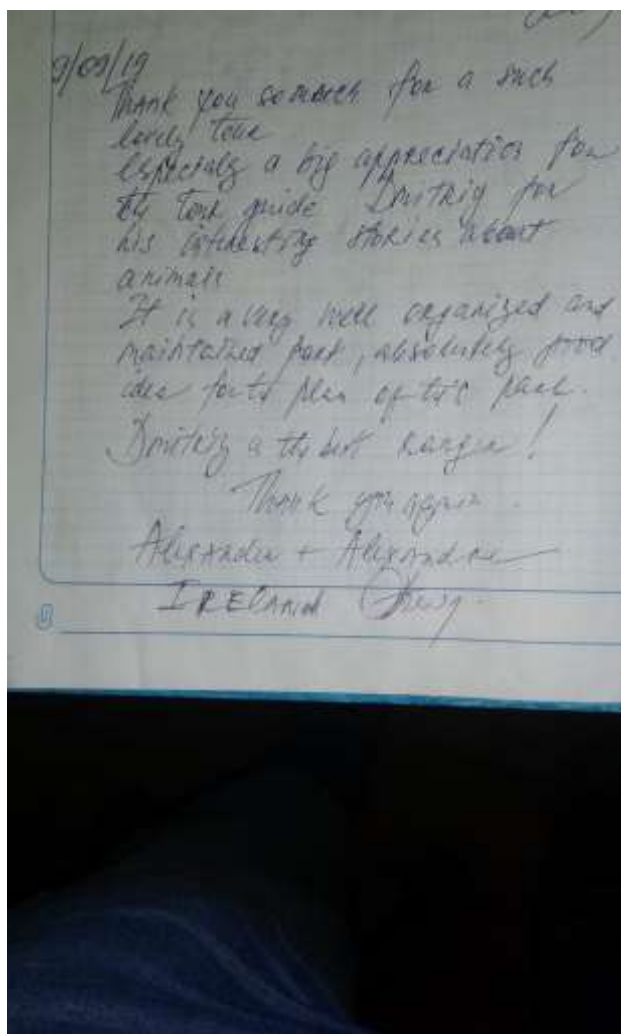 9/09/19
Thank you so much for a such
lovely tour
especialy a big appreciation for
the tour guide Dmitriy for
his interesting stories about
animals
It is a very well organized and
maintained park, absolutely good
idea for the plan of the park.
Dmitriy a the best ranger!
Thank you again.
Alexander + Alexandra
IRELAND